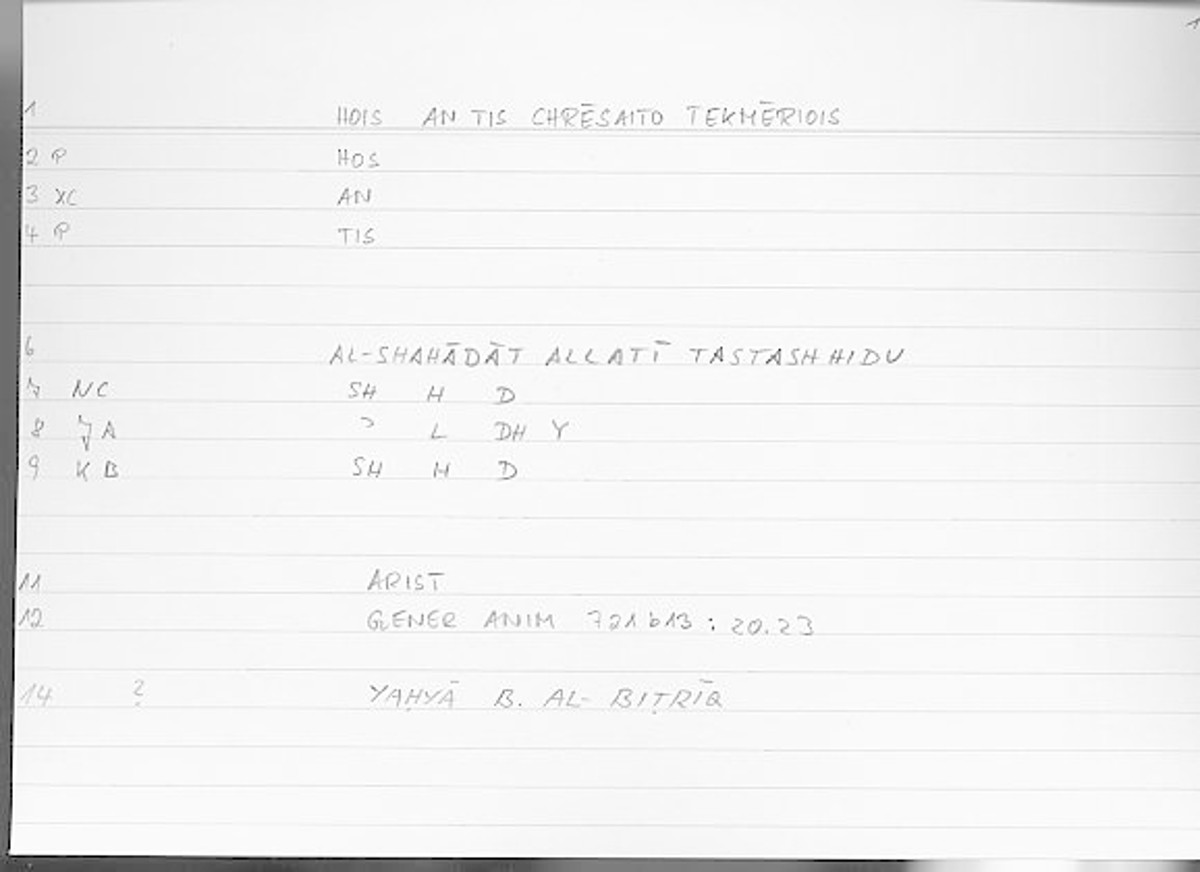 1
1 HOIS AN TIS CHRĒSAITO TEKMĒRIOIS
2 P HOS
3 XC AN
4 P TIS
6 AL-SHAHĀDĀT ALLATĪ TASTASHHIDU
7 NC SH H D
8 A ɔ L DH Y
9 KB SH H D
11 ARIST
12 GENER ANIM 721b13 : 20.23
14 ? YAḤYĀ B. AL-BIṬRĪQ